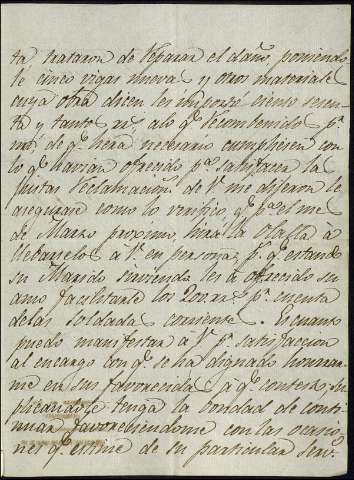 ta trataron de reparar el daño, poniendo
le cinco vigas nuevas y otros materiales
cuya obra dicen les importó ciento sesen-
ta y tantos rrs, a lo qe reconbenidos pr
mi, de qe hera necesario cumpliesen con
lo qe havian ofrecido pa satisfacer la
justas reclamacions de V. me dijeron le
asegurase como lo verifico, qe pa el mes
de Marzo proximo, hira la
llebarselo a V. en persona, pr qe estando
su Marido sirviendo les a ofrecido su
amo facilitarle los 200 rrs pr cuenta
de las soldadas corriente. Es cuanto
puedo manifestar a V. pa satisfaccion
al encargo con qe se ha dignado honrrar-
me en su favorecida a qe contesto, su-
plicandole tenga la bondad de conti-
nuar favoreciendome con las ocasio-
nes qe estime de su particular serv.